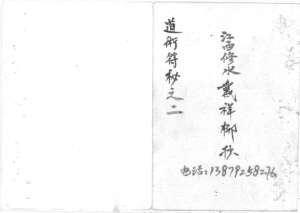 江西修水戴祥柳抄
电话：13879258276
道術符秘之二